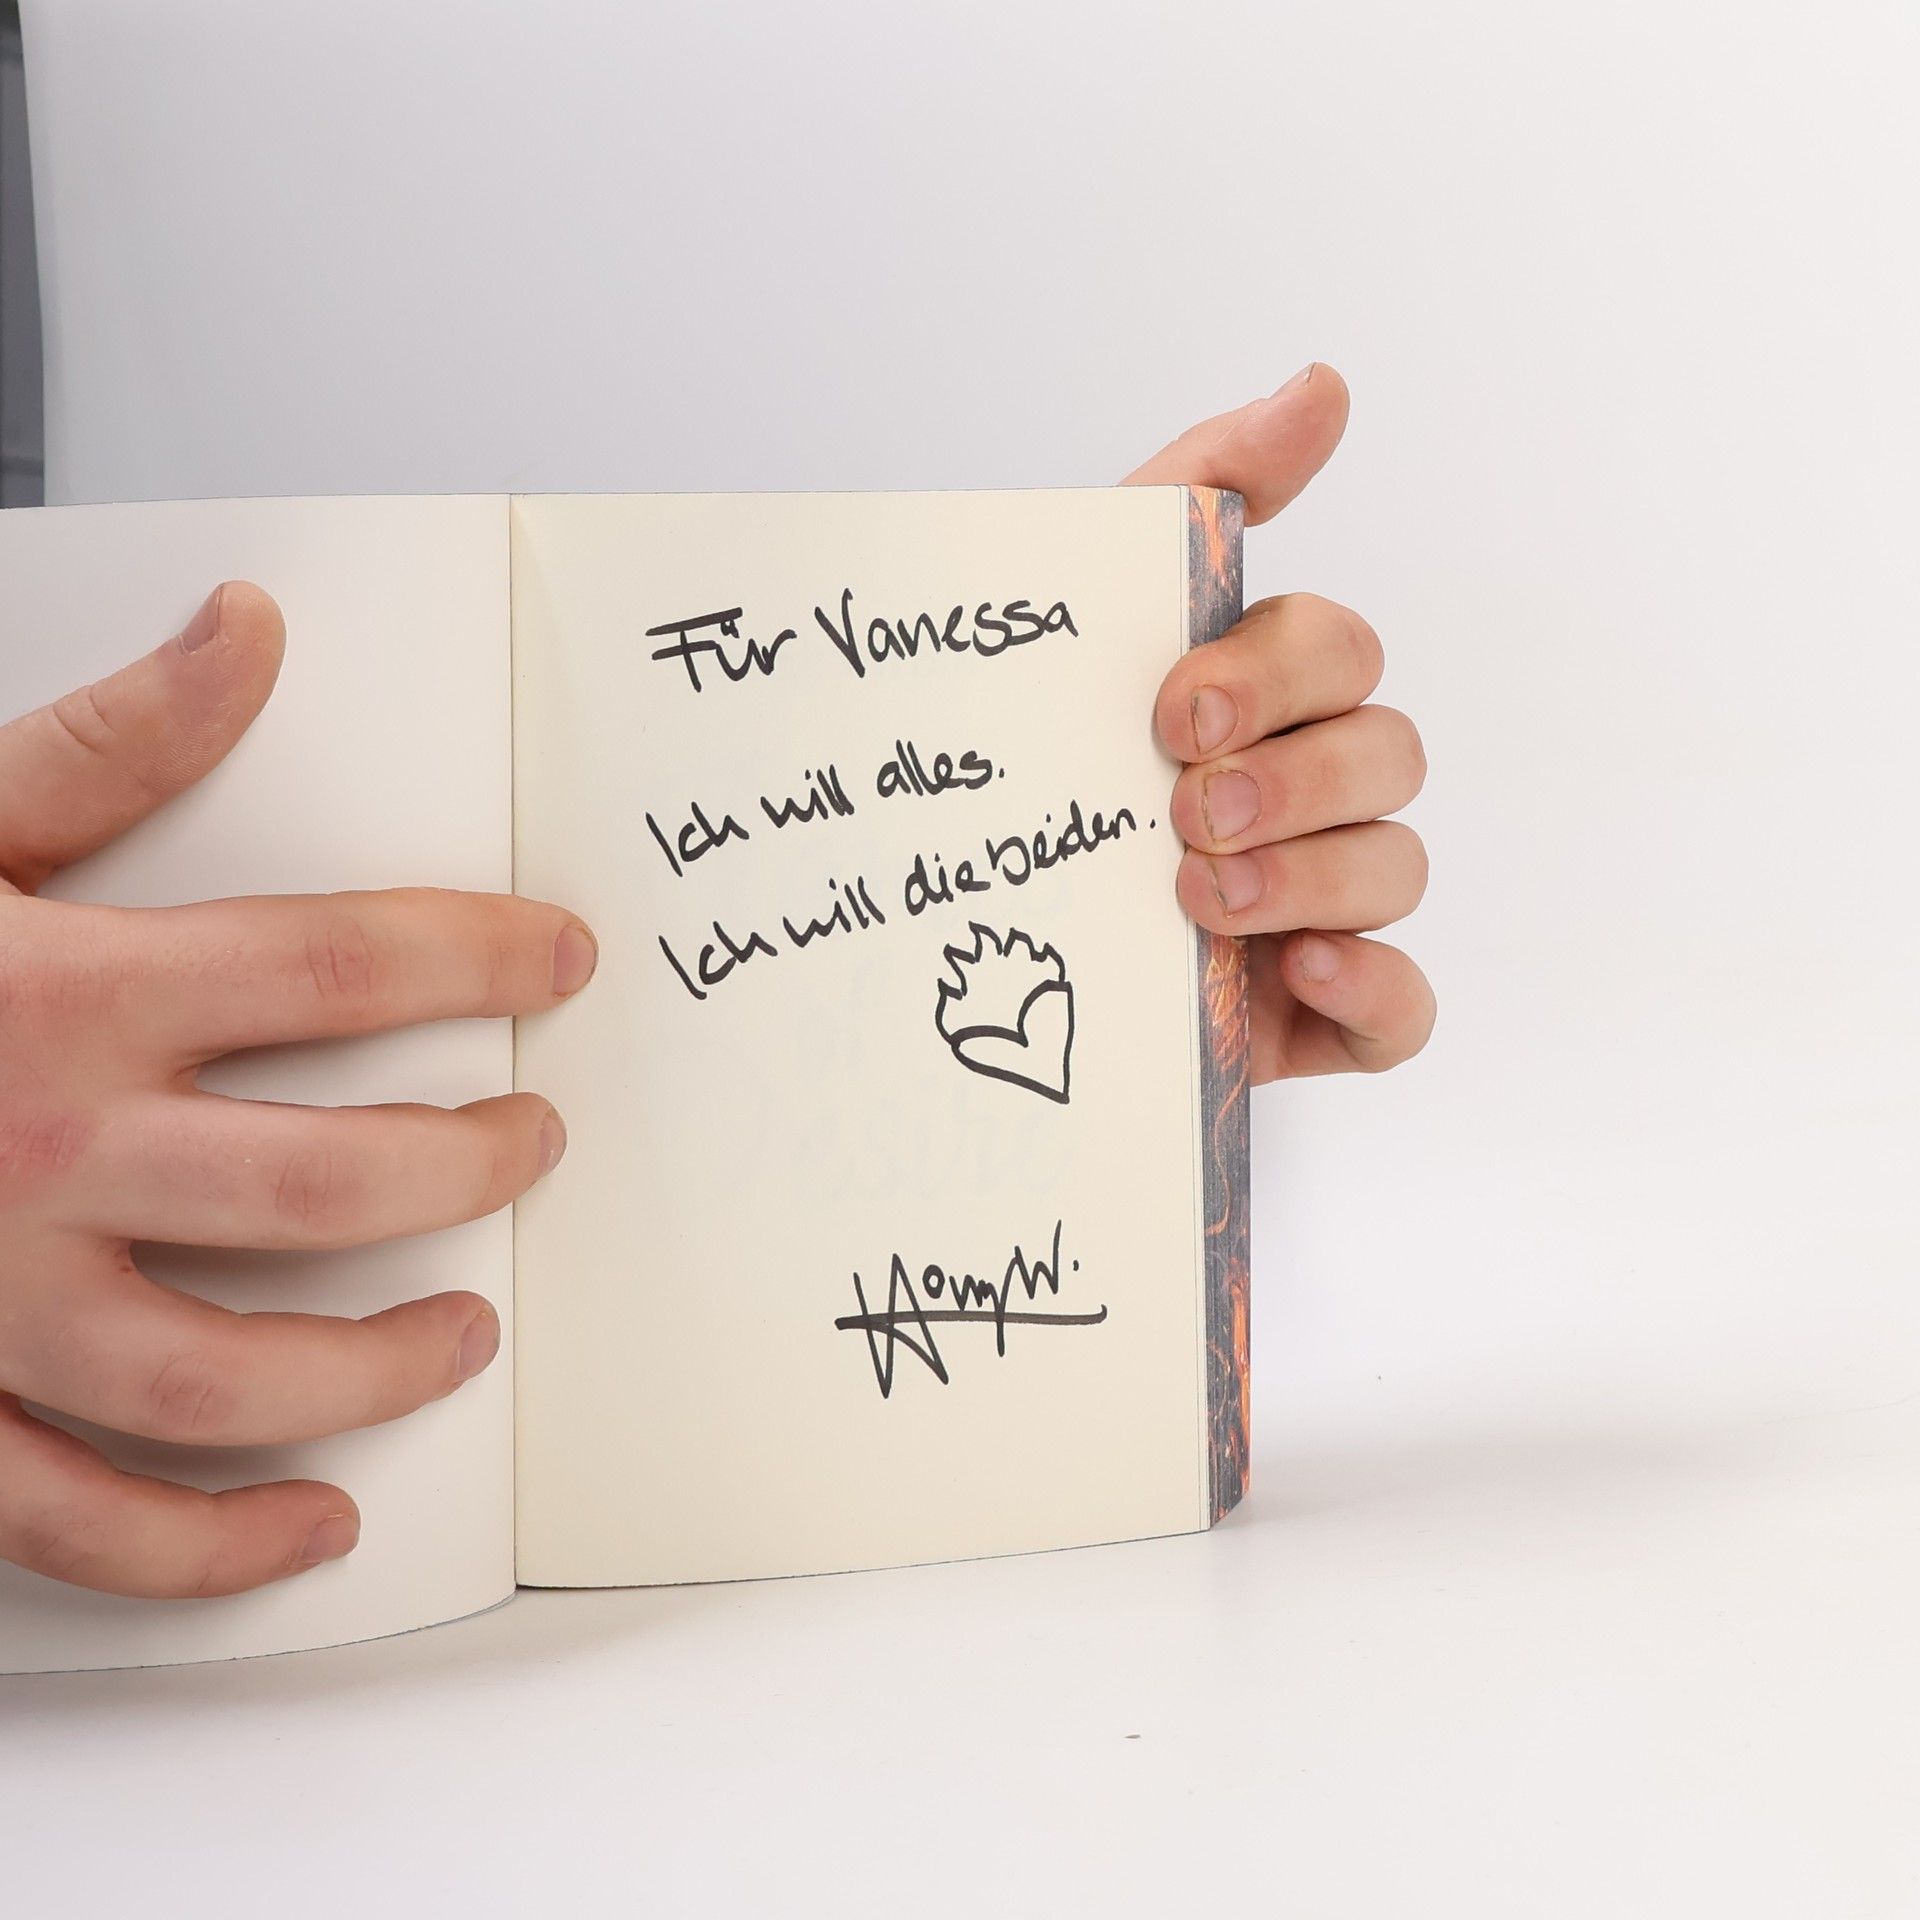 Für Vanessa
Ich will alles.
Ich will die beiden.